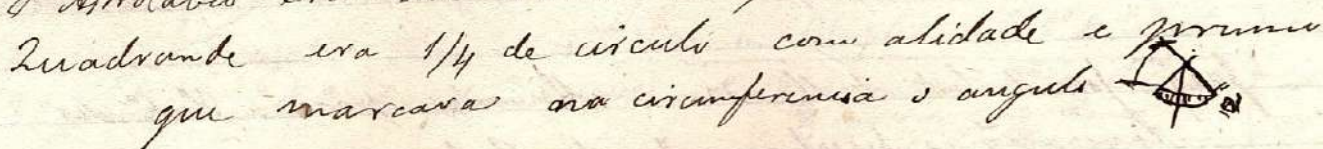 o Astrolabio era
Quadrande era 1/4 de circulo com alidade e prumo
que marcava na circunferencia o angulo